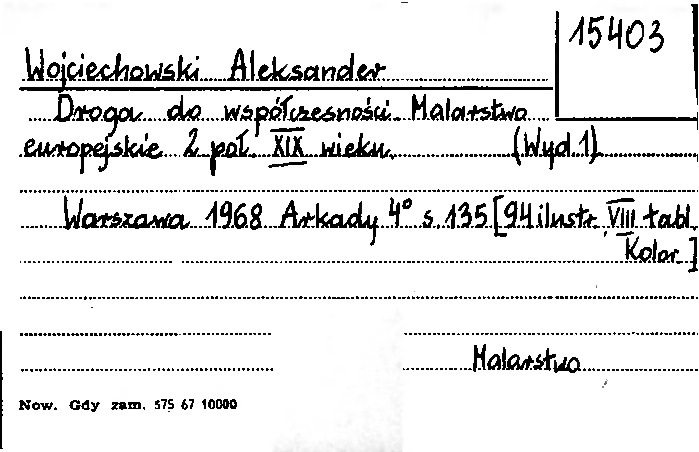 15403
Wojciechowski Aleksander
Droga do współczesności. Malarstwo
europejskie 2 poł. XIX wieku. (Wyd.1)
Warszawa 1968 Arkady 4° s.135 [94 ilustr. VIII tabl.
Kolor.]
Malarstwo
Now. Gdy zam. 575 67 10000